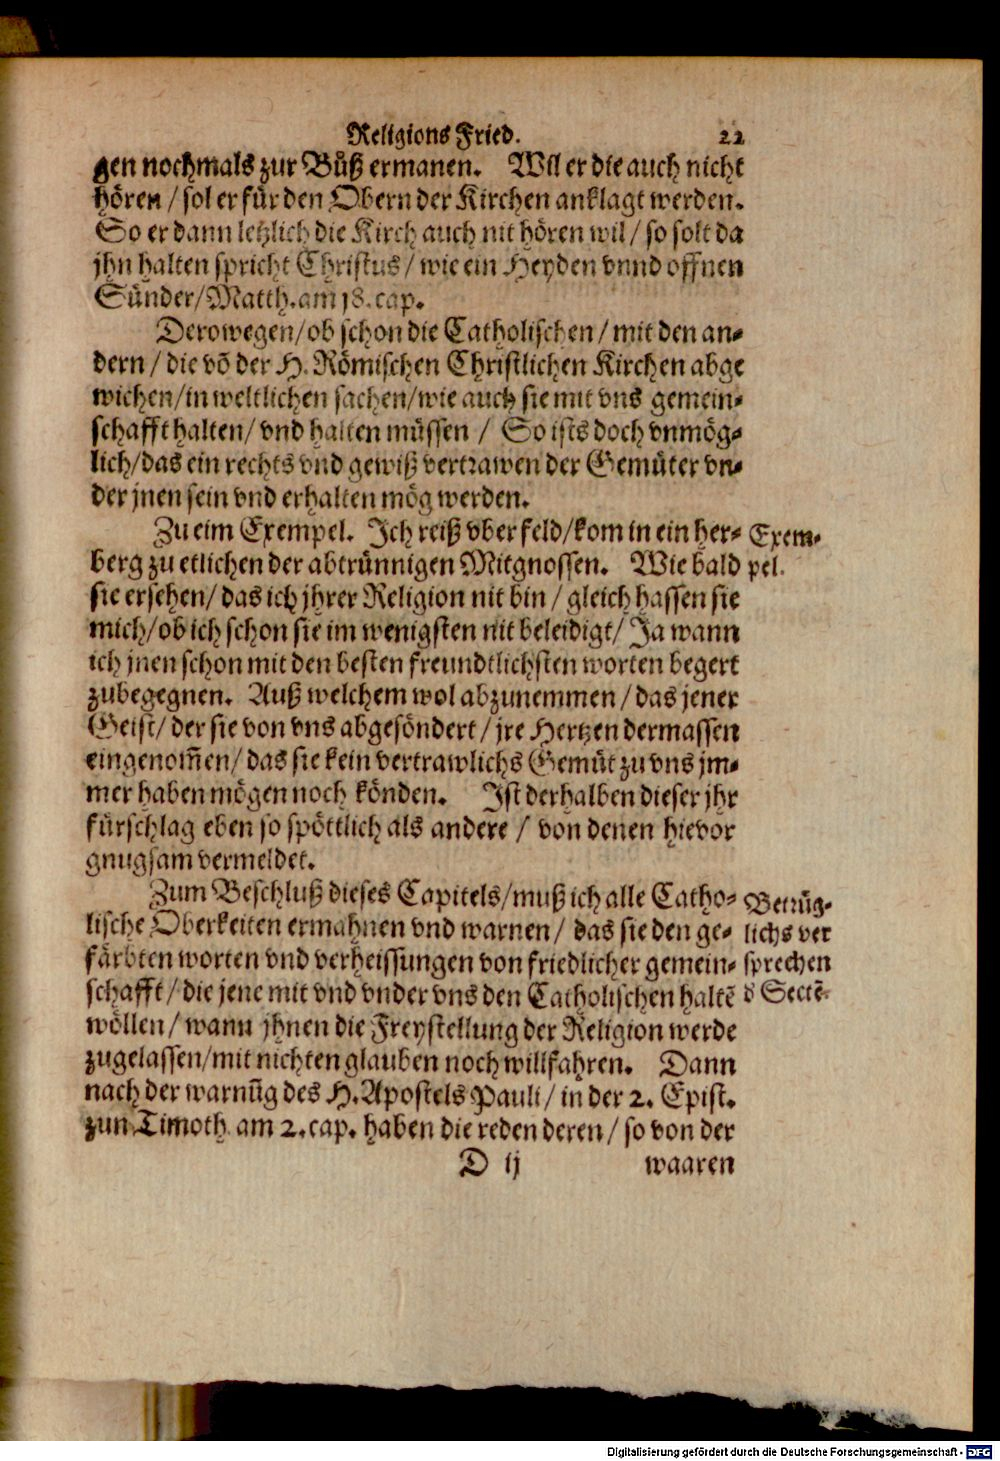 Religions Fried. 22
gen nochmals zur Bůß ermanen. Wil er die auch nicht
hören / sol er für den Obern der Kirchen anklagt werden.
So er dann letzlich die Kirch auch nit hören wil / so solt da
jhn halten spricht Christus / wie ein Heyden vnnd offnen
Sünder/Matth. am 18. cap.
Derowegen/ob schon die Catholischen / mit den an-
dern / die võ der H. Römischen Christlichen Kirchen abge
wichen/in weltlichen sachen/wie auch sie mit vns gemein-
schafft halten/ vnd halten müssen / So ists doch vnmög-
lich/das ein rechts vnd gewiß vertrawen der Gemüter vn-
der jnen sein vnd erhalten mög werden.
Zu eim Exempel. Ich reiß vber feld/kom in ein her- Exem-
berg zu etlichen der abtrünnigen Mitgnossen. Wie bald pel.
sie ersehen/ das ich jhrer Religion nit bin / gleich hassen sie
mich/ob ich schon sie im wenigsten nit beleidigt/ Ja wann
ich jnen schon mit den besten freundtlichsten worten begert
zubegegnen. Auß welchem wol abzunemmen / das jener
Geist/ der sie von vns abgesöndert / jre Hertzen dermassen
eingenom̃en/ das sie kein vertrawlichs Gemüt zu vns jm-
mer haben mögen noch könden. Ist derhalben dieser jhr
fürschlag eben so spöttlich als andere / von denen hievor
gnugsam vermeldet.
Zum Beschluß dieses Capitels/muß ich alle Catho- Betrüg-
lische Oberkeiten ermahnen vnd warnen / das sie den ge- lichs ver
färbten worten vnd verheissungen von friedlicher gemein- sprechen
schafft / die jene mit vnd vnder vns den Catholischen haltẽ d Sectẽ.
wöllen / wann jhnen die Freystellung der Religion werde
zugelassen/mit nichten glauben noch willfahren. Dann
nach der warnũg des H. Apostels Pauli / in der 2. Epist.
zun Timoth. am 2. cap. haben die reden deren / so von der
D ij waaren
Digitalisierung gefördert durch die Deutsche Forschungsgemeinschaft - DFG